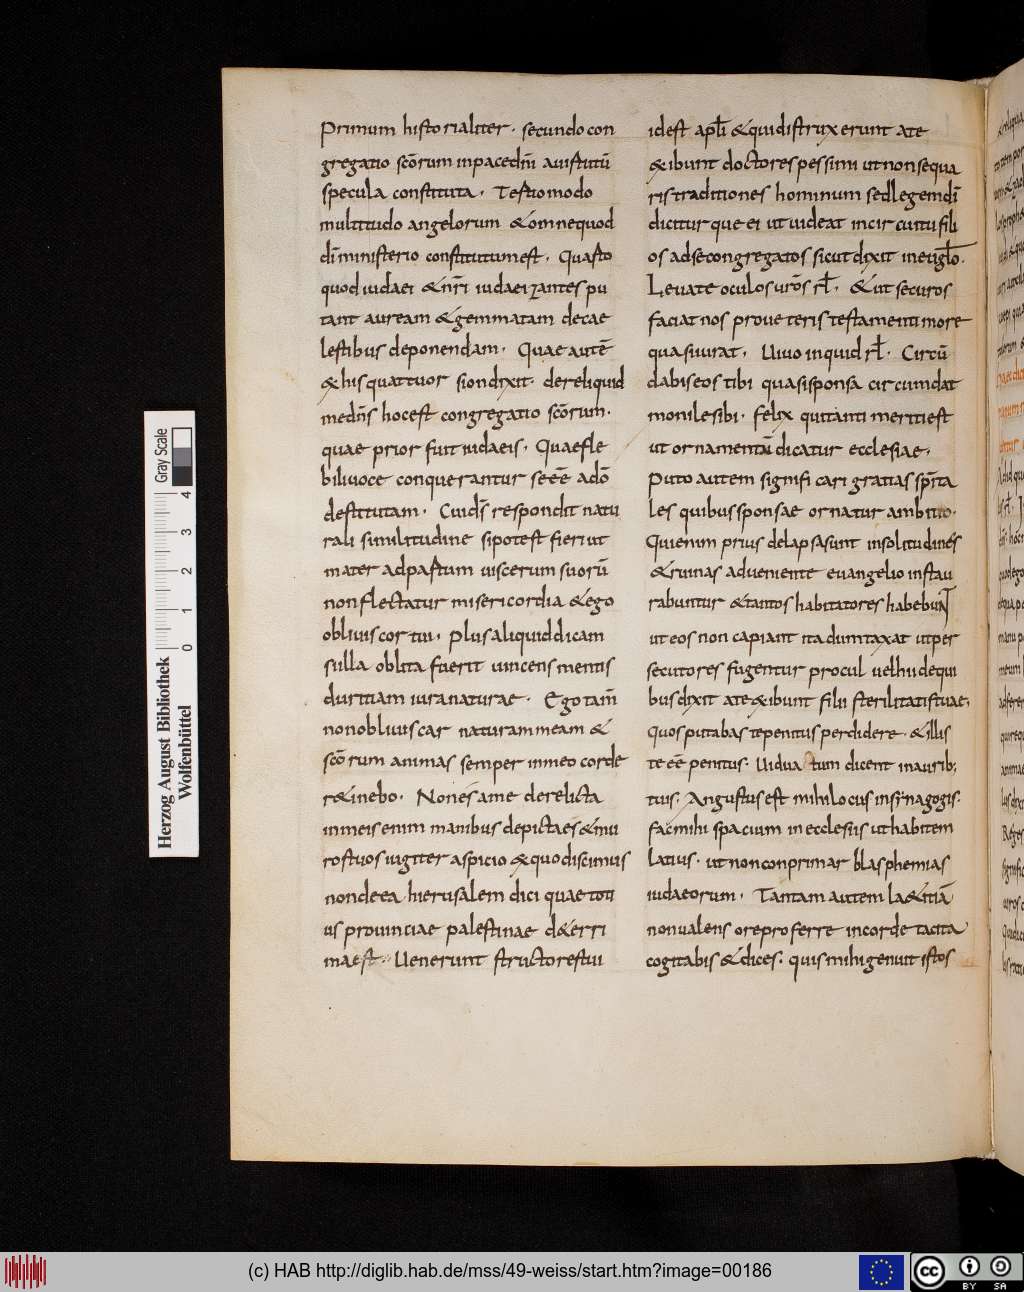 Primum historialiter · secundo con
gregatio scōrum in pace dn̄i aut statutū
specula constituta · Tertio modo
multitudo angelorum & omne quod
dī ministerio constitutum est · Quarto
quod iudaei & nr̄i iudaeizantes pu
tant auream & gemmatam decae
lestibus deponendam · Quae autē
ex his quattuor sion dixit · dereliquid
me dn̄s hoc est congregatio scōrum ·
quae prior fuit iudaeis · Quae fle
bili uoce conquerantur se eē adō
destitutam · Cui dn̄s respondit natu
rali similitudine si potest fieri ut
mater ad partum uiscerum suorū
non flectatur misericordia & ego
obliuiscor tui · plus aliquid dicam
si illa oblita fuerit uincens mentis
duritiam iura naturae · Ego tam̄
non obliuiscar naturam meam &
scōrum animas semper in meo corde
r&inebo · Non es a me derelicta
in meis enim manibus depicta es & mu
ros tuos iugiter aspicio ex quo discimus
non de ea hierusalem dici quae toti
us prouinciae palestinae d&erri
ma est · Uenerunt structores tui
id est apl̄i & qui distruxerunt a te
exibunt doctores pessimi ut non sequa
ris traditiones hominum sed legem dī
dicitur que ei ut uideat in circuitu fili
os ad se congregatos sicut dixit in euglō ·
Leuate oculos urōs rl̄ · & ut securos
faciat nos pro ueteris testamenti more
quasi iurat · Uiuo inquid rl̄ · Circū
dabis eos tibi quasi sponsa circumdat
monile sibi · felix qui tanti meriti est
ut ornamentū dicatur ecclesiae ·
Puto autem significari gratias spr̄ita
les quibus sponsae ornatur ambitio ·
Qui enim prius delapsa sunt in solitudines
& ruinas adueniente euangelio instau
rabuntur & tantos habitatores habebunt
ut eos non capiant ita dumtaxat ut per
secutores fugentur procul uel hii de qui
bus dixit a te exibunt filii sterilitatis tuae ·
Quos putabas te penitus perdidere · & illis
te eē penitus · Uidua tum dicent in aurib;
tuis · Angustus est mihi locus in synagogis ·
fac mihi spacium in ecclesiis ut habitem
latius · ut non conprimar blasphemias
iudaeorum · Tantam autem la&itiā
non ualens ore proferre in corde tacita
cogitabis & dices · quis mihi genuit istos
Herzog August Bibliothek
Wolfenbüttel
0 1 2 3 4
Gray Scale
(c) HAB http://diglib.hab.de/mss/49-weiss/start.htm?image=00186
cc BY SA